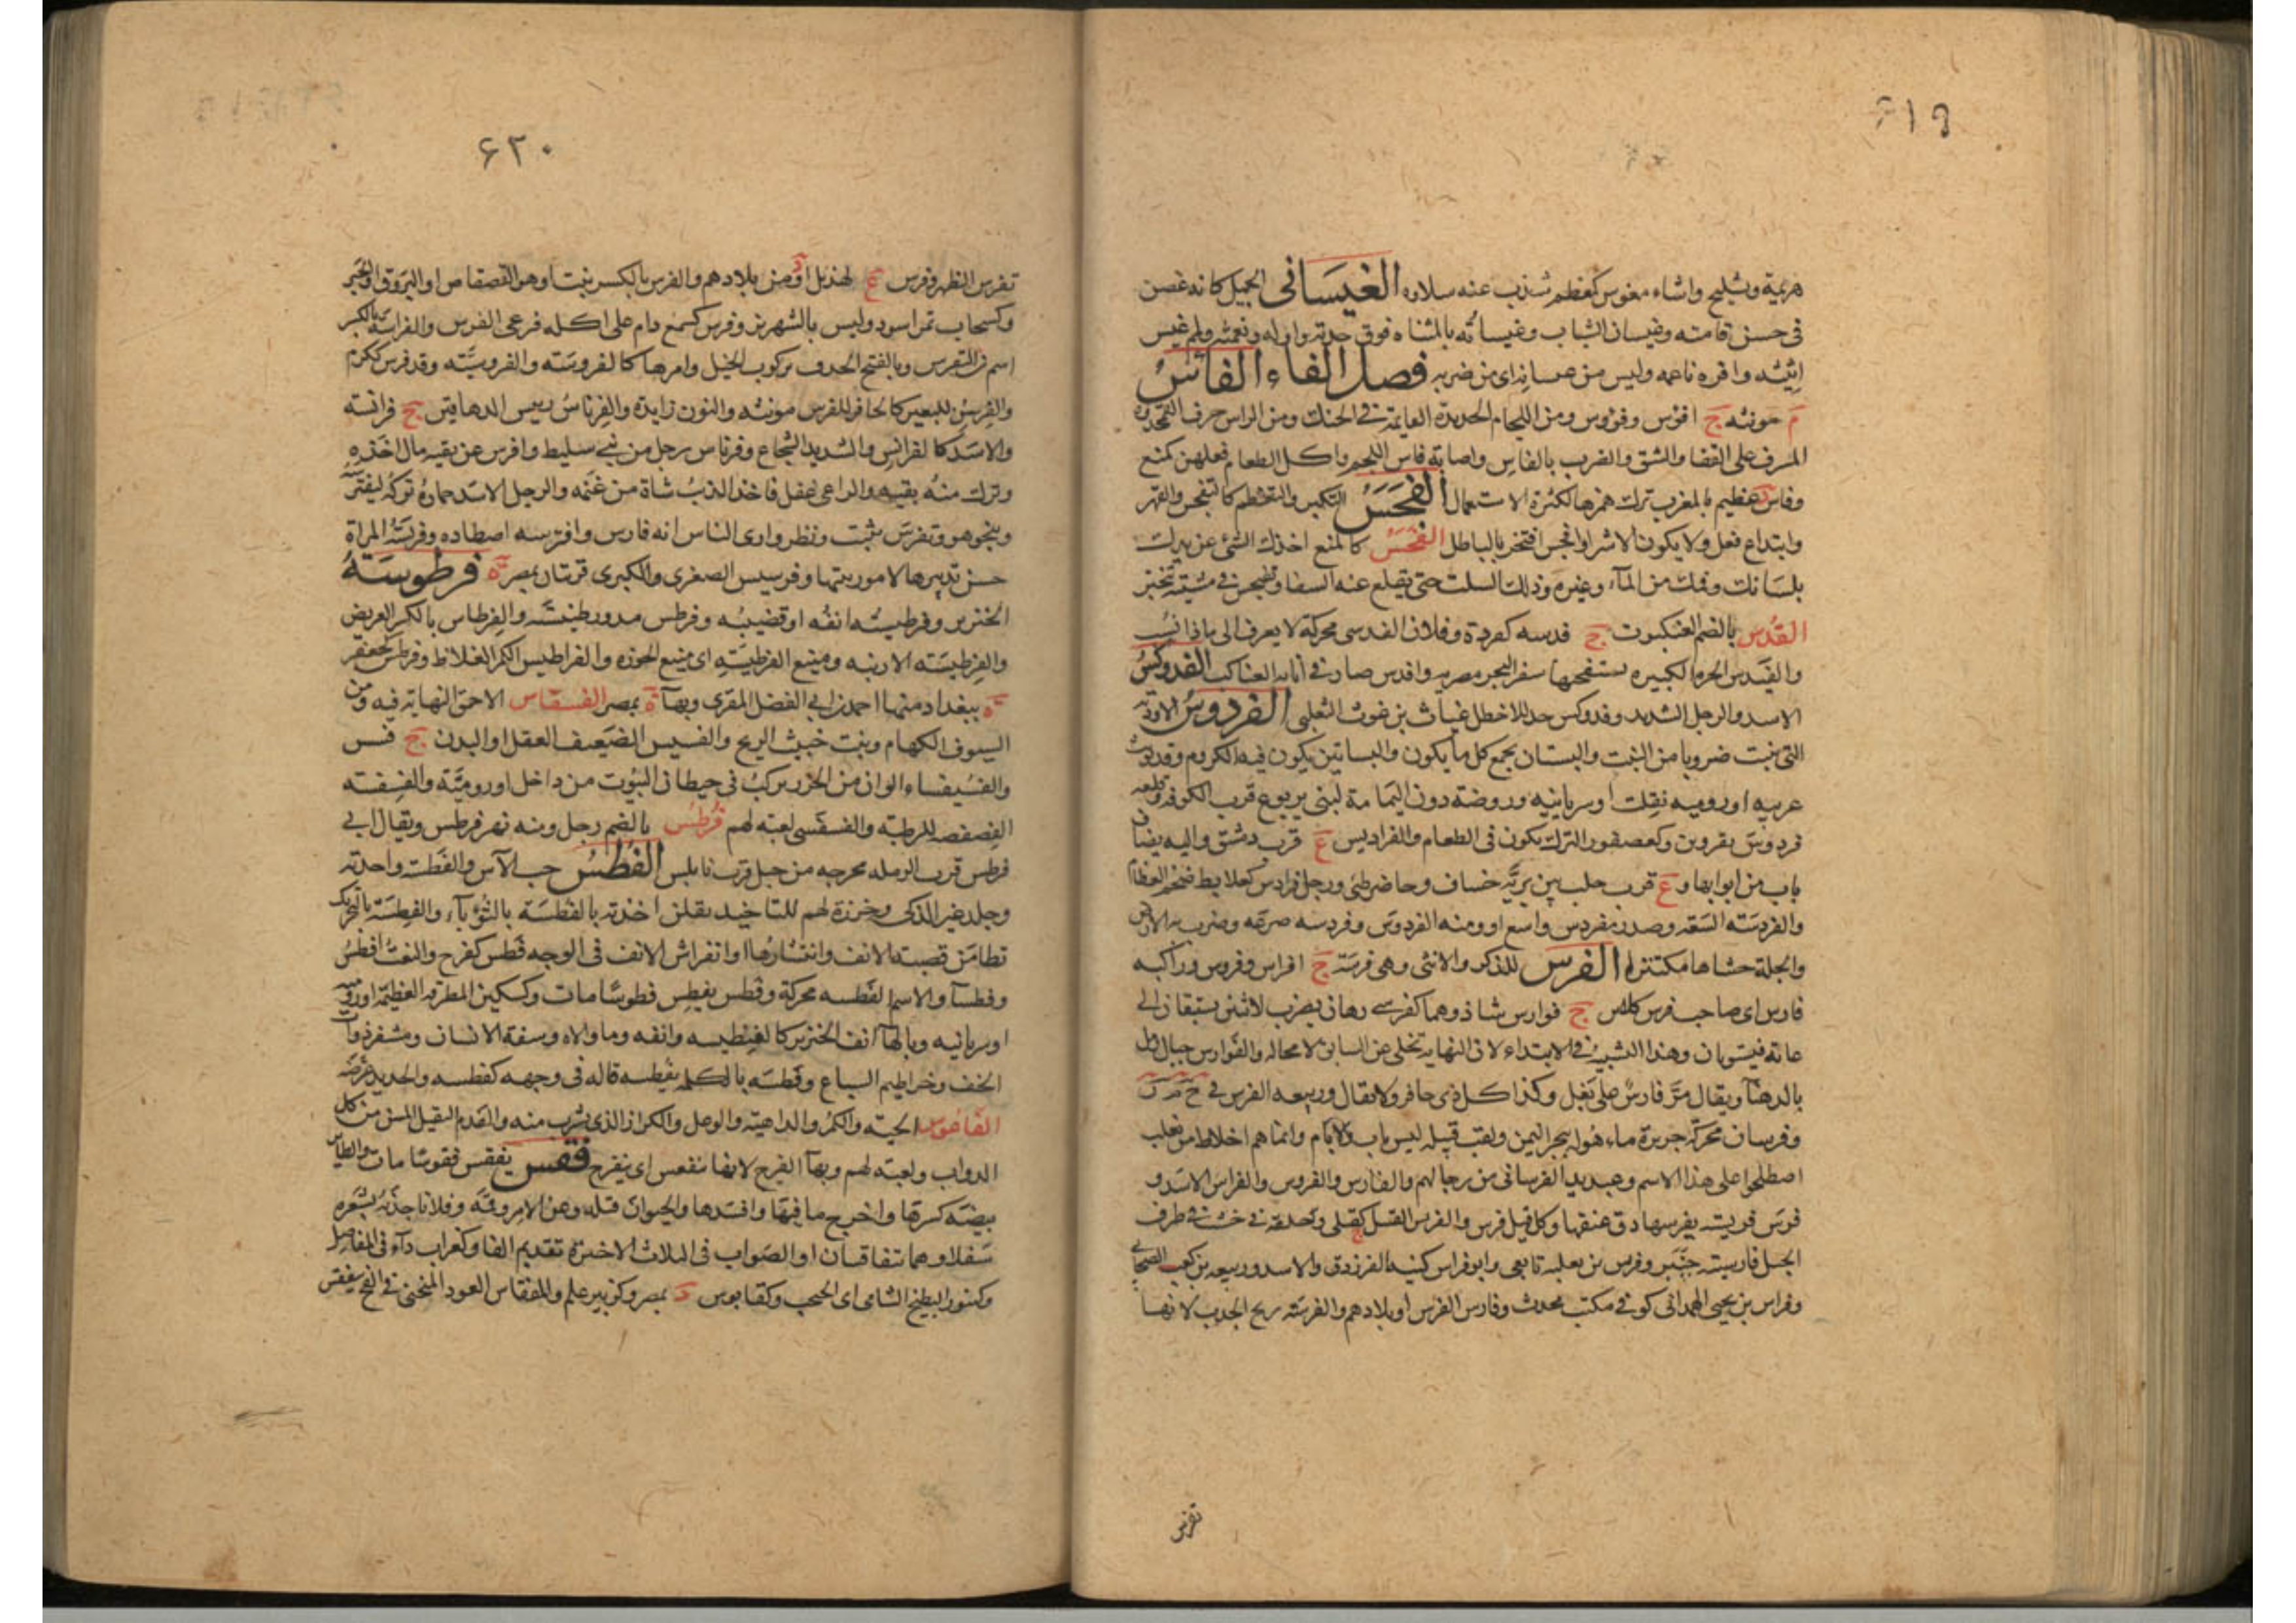 ۶۱۹
هريمة وتشليح واشاء مغوس كمعظم شذب عنه سلاوه الغيساني الجميل كانه غصن
في حسن قامته وغيسان الشباب وغيساته بالمثناه فوق حدته واوله ونعمته ولم غيس
اثيثه وافره ناعمه وليس من غسانه اى من ضربه فصل الفاء الفاس
م مونثه ج افوس وفووس ومن اللجام الحديدة القايمة في الحنك ومن الراس حرف القمحدوة
المشرف على القفا والشق والضرب بالفاس واصابة فاس اللجم واكل الطعام فعلهن كمنع
وفاس د عظيم بالمغرب ترك همزها لكثرة الاستعمال الفجس التكبر والتعظم كالتفجس والقهر
وابتداع فعل ولا يكون الا شرا وافجس افتخر بالباطل الفحس كالمنع اخذك الشئ عن يدك
بلسانك وفمك من المآء وغيره وذلك السلت حتى يقلع عنه السفا وتفيحس في مشيته تبختر
القدس بالضم العنكبوت ج فدسه كقردة وفلان الفدسى محركة لا يعرف الى ماذا نسب
والفيدس الجره الكبيره يستصحبها سفر البحر مصريه وافدس صار في انائه العناكب الفدوكس
الاسد والرجل الشديد وفدوكس جد للاخطل غياث بن غوث التغلبى الفردوس الاودية
التى تنبت ضروبا من النبت والبستان يجمع كل ما يكون والبساتين يكون فيه الكروم وقد يونث
عربيه او روميه نقلت او سريانيه وروضة دون اليمامة لبنى يربوع قرب الكوفه وقلعه
فردوس بقروين وكعصفور النزل يكون فى الطعام والفراديس ع قرب دمشق واليه يضاف
باب من ابوابها وع قرب حلب بين برية خساف وحاضر طئ ورجل فرادس كعلابط ضخم العظام
والفردسه السعه وصدر مفردس واسع او ومنه الفردوس وفردسه صرعه وضرب به الارض
والجلة حشاها مكتنزا الفرس للذكر والانثى وهى فرسة ج افراس وفروس وراكبه
فارس اى صاحب فرس كلابن ج فوارس شاذ وهما كفرسى رهان يضرب لاثنين يستبقان الى
غاته فيستويان وهذا التشبيه في الابتداء لان النهايه تجلى عن السابق لا محاله والفوارس جبال رمل
بالدهنآ ويقال مر فارس على بغل وكذا كل ذى حافر ولا يقال وربيعه الفرس في ح م ر
وفرسان محركة جزيرة ماهولة ببحر اليمن ولقب قبيلة ليس باب ولا بام وانما هم اخلاط من تغلب
اصطلحوا على هذا الاسم وعبديد الفرسانى من رجالهم والفارس والفروس والفراس الاسد و
فرس فريسته يفرسها دق عنقها وكل قتل فرس والفرس القتيل ج كقتلى وحلقة من خشب في طرف
الحبل فارسيته چنبر وفرس بن ثعلبه تابعى وابوفراس كنية الفرزدق والاسد وربيعه بن كعب الصحابى
وفراس بن يحيى الهمدانى كوفي مكتب محدث وفارس الفرس او بلادهم والفرسه ريح الحدب لانها
تفرس
۶۲۰
تفرس الظهر وفرس ع لهذيل او د من بلادهم والفرس بالكسر نبت او هو القصقاص او البروق او الحبر
وكسحاب تمر اسود وليس بالشهريز وفرس كسمع دام على اكله فرعى الفرس والفراسة بالكسر
اسم من التفرس وبالفتح الحدق بركوب الخيل وامرها كالفروسته والفروسيته وقد فرس ككرم
والفرسن للبعير كالحافر للفرس مونثه والنون زايدة والفرناس رييس الدهاقين ج فرانسه
والاسد كالفرانس والشديد الشجاع وفرناس رجل من بنى سليط وافرس عن بقيه مال اخذه
وترك منه بقيه والراعى غفل فاخذ الذئب شاة من غنمه والرجل الاسد حماره تركه ليفترسه
وينجو هو وتفرس تثبت ونظر وارى الناس انه فارس وافترسه اصطاده وفرسته المراة
حسن تدبيرها لامور بيتها وفرسيس الصغرى والكبرى قريتان بمصر ة فرطوسة
الخنزير وفرطيسته انفه او قضيبه وفرطس مدور طينته والفرطاس بالكسر العريض
والفرطيسته الارنبه ومنيع الفرطيسه اى منيع الحوزه والفراطيس الكمر الغلاظ وفرطس كجعفر
ة ببغداد منها احمد بن ابى الفضل المقرى وبهآ ة بمصر الفسقاس الاحمق النهاية فيه ومن
السيوف الكهام ونبت خبيث الريح والفسيس الضعيف العقل او البدن ج فسس
والفسيفساء الوان من الخرز يركب فى حيطان البيوت من داخل او رومية والفسفسه
الفصفصه للرطبه والفسفسى لعبه لهم فرطس بالضم رجل ومنه نهر فرطس ويقال ابى
فرطس قرب الرمله مخرجه من جبل قرب نابلس الفطس حب الآس والفطسة واحدته
وجلد غير الذكى وخرزة لهم للتاخيد يقلن اخذته بالفطسة بالثوبآء والفطسة بالتحريك
تطامن قصبة الانف وانتشارها او انفراش الانف فى الوجه فطس كفرح والنعت افطس
وفطسآ والاسم الفطسه محركة وفطس يفطس فطوسا مات وكسكين المطرقه العظيمة او روميه
او سريانيه وبالهآ انف الخنزير كالفنطيسه وانفه وما والاه وشفة الانسان ومشفر ذوات
الخف وخراطيم السباع وفطسه بالكلمه يفطسه قاله فى وجهه كفطسه والحديد عرضه
الفاعوس الحية والكمر والداهيته والوعل والكراز الذى يشرب منه والفدم الثقيل المسن من كل
الدواب ولعبه لهم وبهآ الفرج لانها تنفعس اى ينفرج فقس يفقس فقوسا مات والطائر
بيضه كسرها واخرج ما فيها وافسدها والحيوان قتله وعن الامر وقمه وفلانا جذبه بشعره
سفلا وهما يتفاقسان او الصواب فى الثلاث الاخيره تقديم القاف وكغراب دآء فى المفاصل
وكتنور البطيخ الشامى اى الحبحب وكقابوس د بمصر وكزبير علم والمفقاس العود المنحنى في الفخ ينفقس